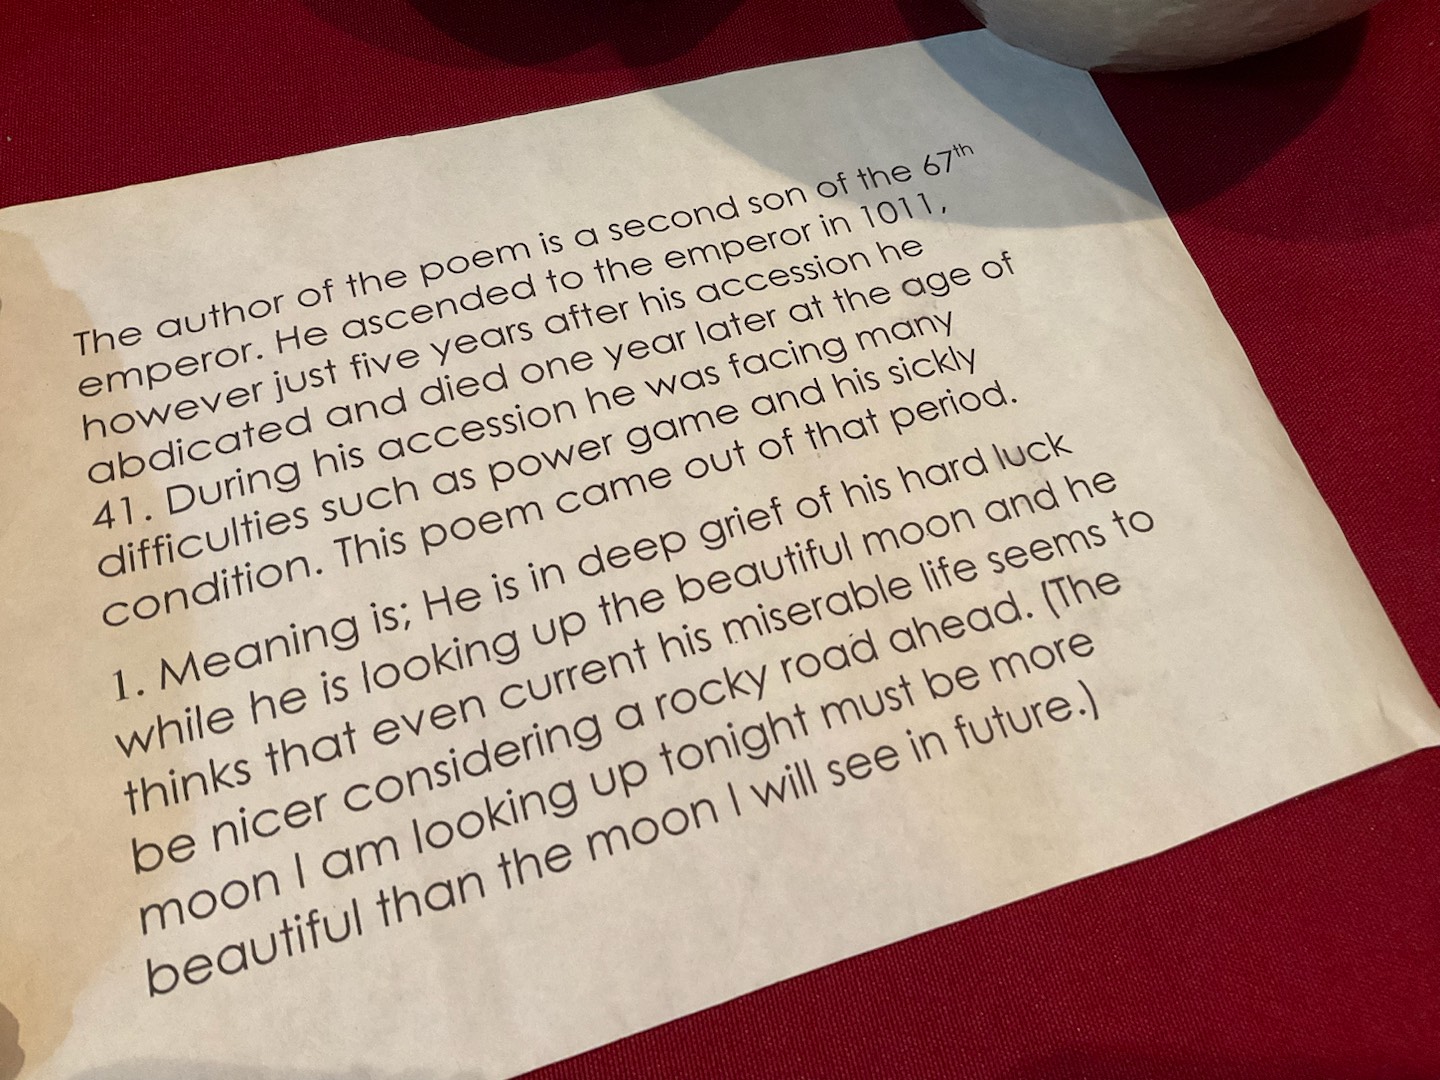 The author of the poem is a second son of the 67th
emperor. He ascended to the emperor in 1011,
however just five years after his accession he
abdicated and died one year later at the age of
41. During his accession he was facing many
difficulties such as power game and his sickly
condition. This poem came out of that period.
1. Meaning is; He is in deep grief of his hard luck
while he is looking up the beautiful moon and he
thinks that even current his miserable life seems to
be nicer considering a rocky road ahead. (The
moon I am looking up tonight must be more
beautiful than the moon I will see in future.)